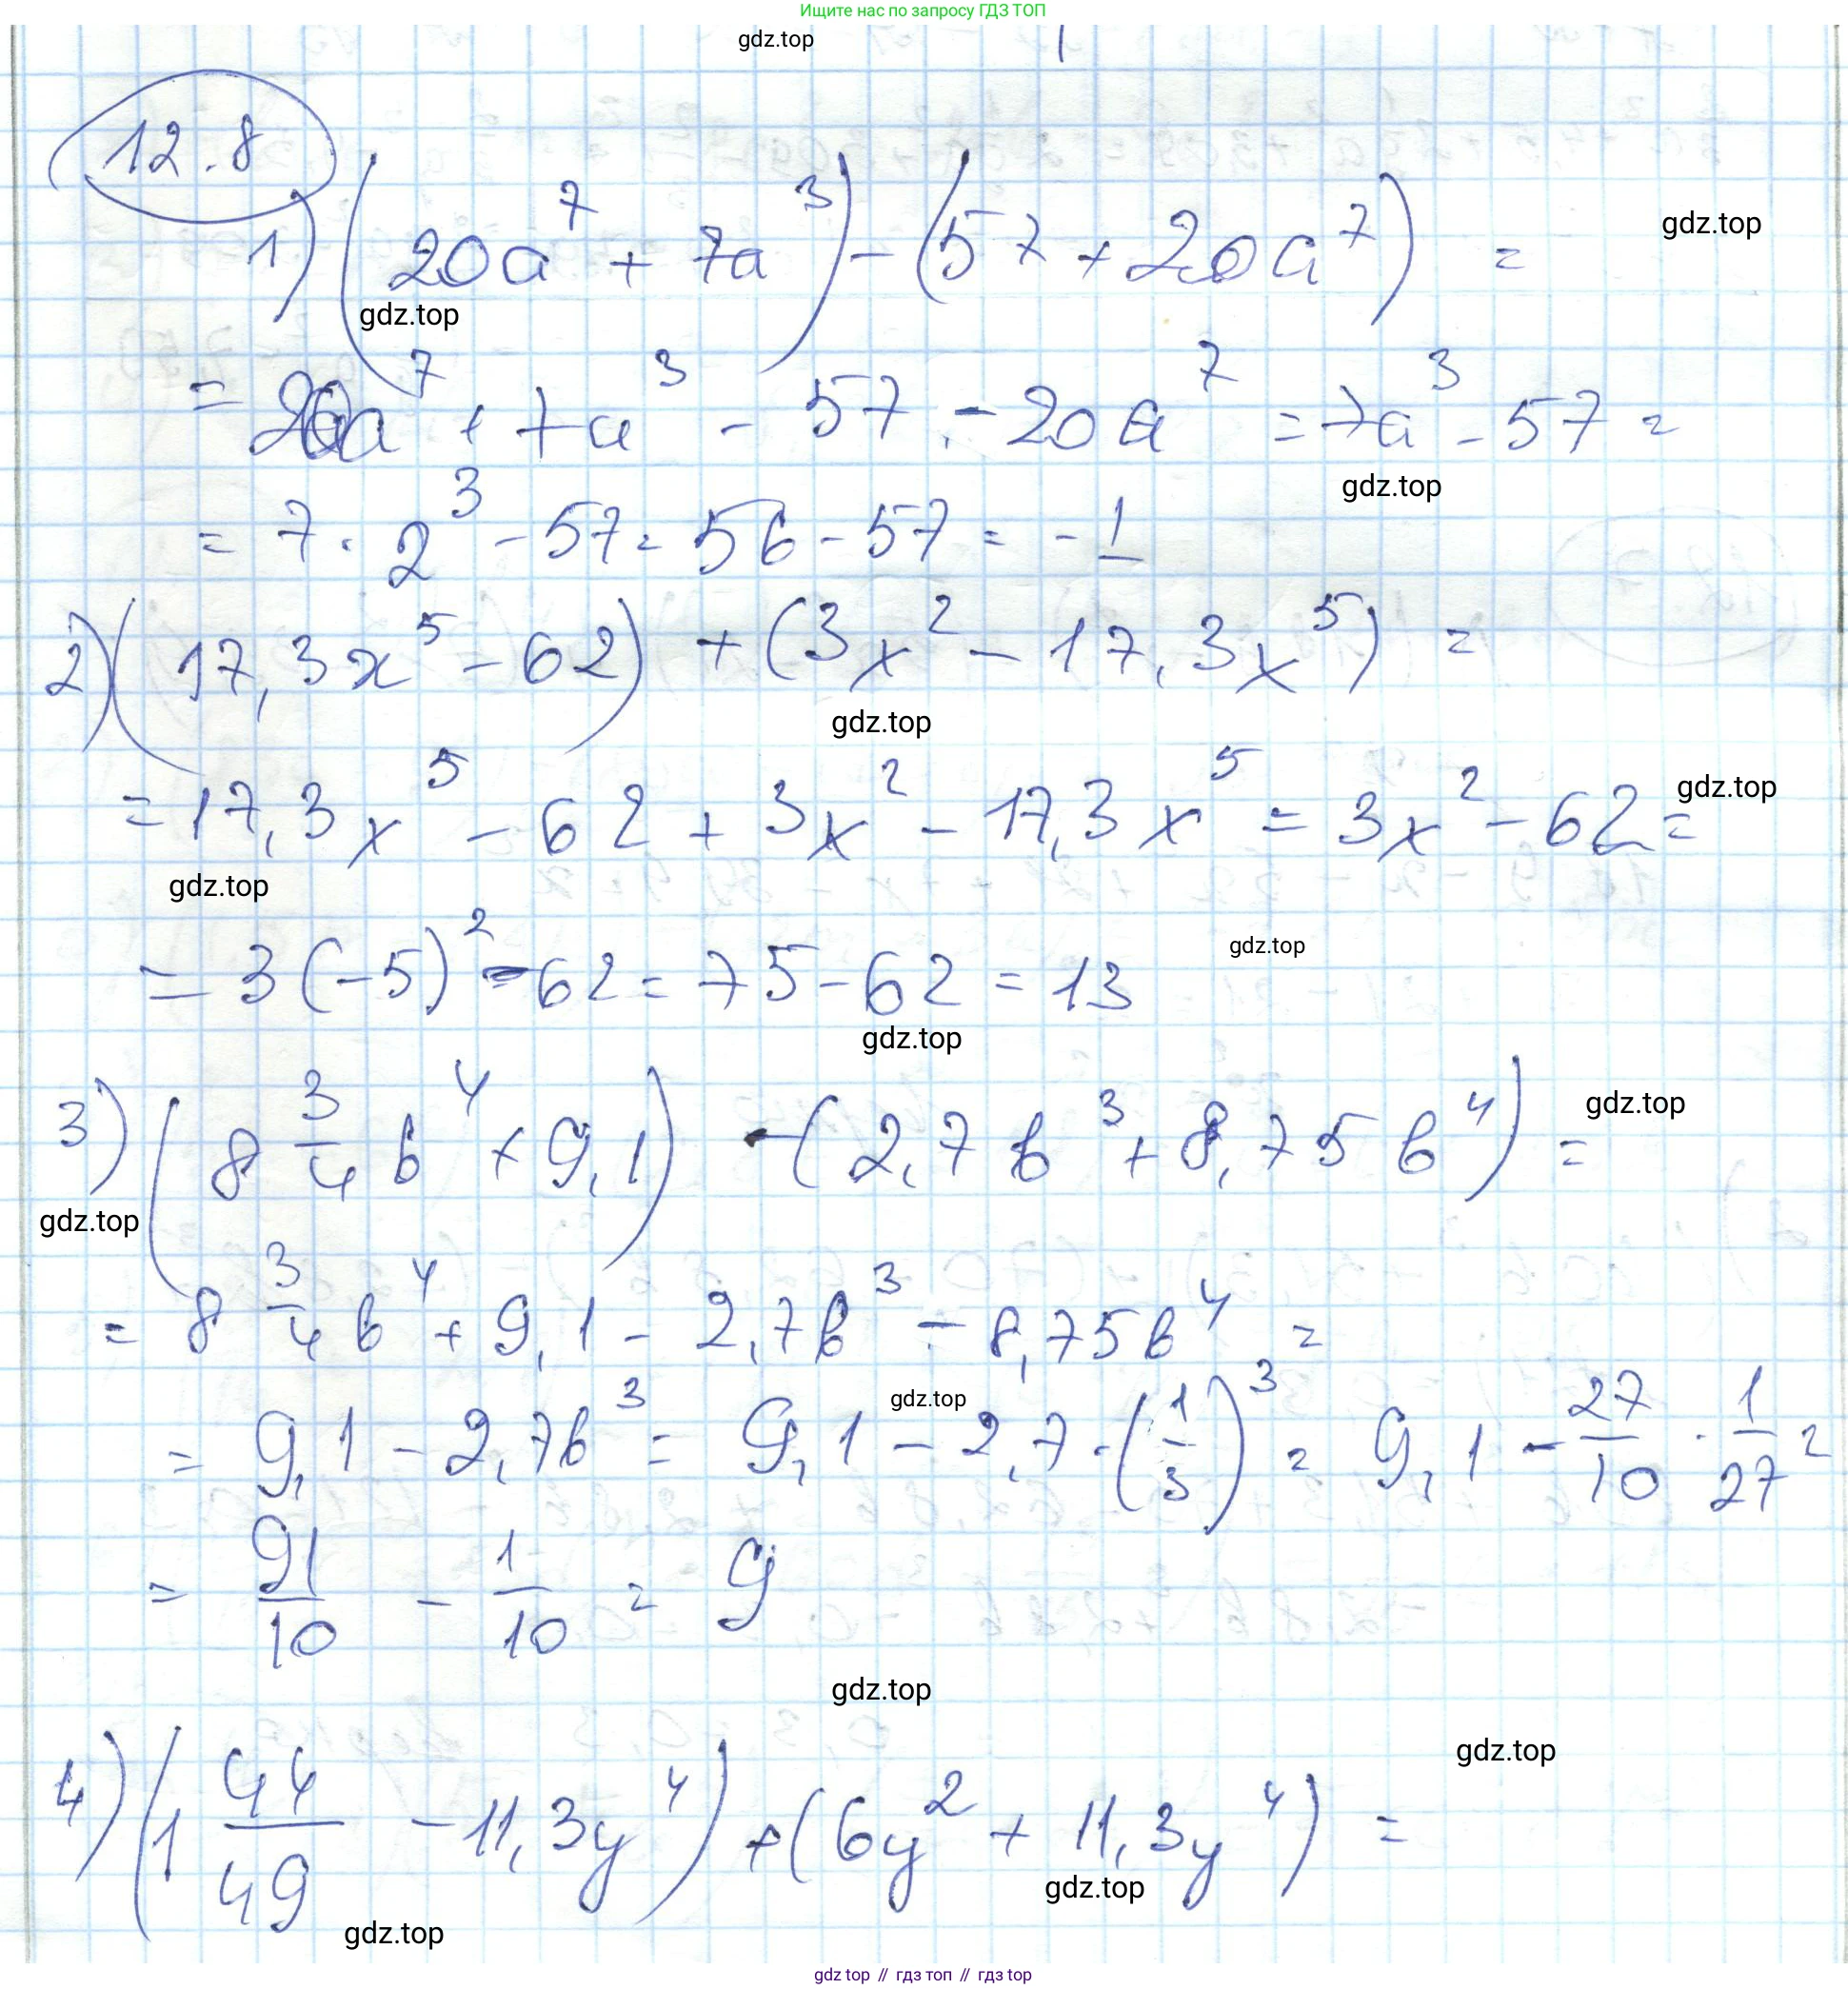 Ищите нас по запросу ГДЗ ТОП
gdz.top
12.8
1) (20a⁷ + 7a³) - (57 + 20a⁷) =
gdz.top
gdz.top
= 20a⁷ + 7a³ - 57 - 20a⁷ = 7a³ - 57 =
gdz.top
= 7 · 2³ - 57 = 56 - 57 = -1
2) (17,3x⁵ - 62) + (3x² - 17,3x⁵) =
gdz.top
= 17,3x⁵ - 62 + 3x² - 17,3x⁵ = 3x² - 62 =
gdz.top
gdz.top
= 3(-5)² - 62 = 75 - 62 = 13
gdz.top
gdz.top
3) (8 3/4 b⁴ + 9,1) - (2,7b³ + 8,75b⁴) =
gdz.top
gdz.top
= 8 3/4 b⁴ + 9,1 - 2,7b³ - 8,75b⁴ =
gdz.top
= 9,1 - 2,7b³ = 9,1 - 2,7 · (1/3)³ = 9,1 - 27/10 · 1/27 =
= 91/10 - 1/10 = 9
gdz.top
gdz.top
4) (1 44/49 - 11,3y⁴) + (6y² + 11,3y⁴) =
gdz.top
gdz.top
gdz top // гдз топ // гдз top